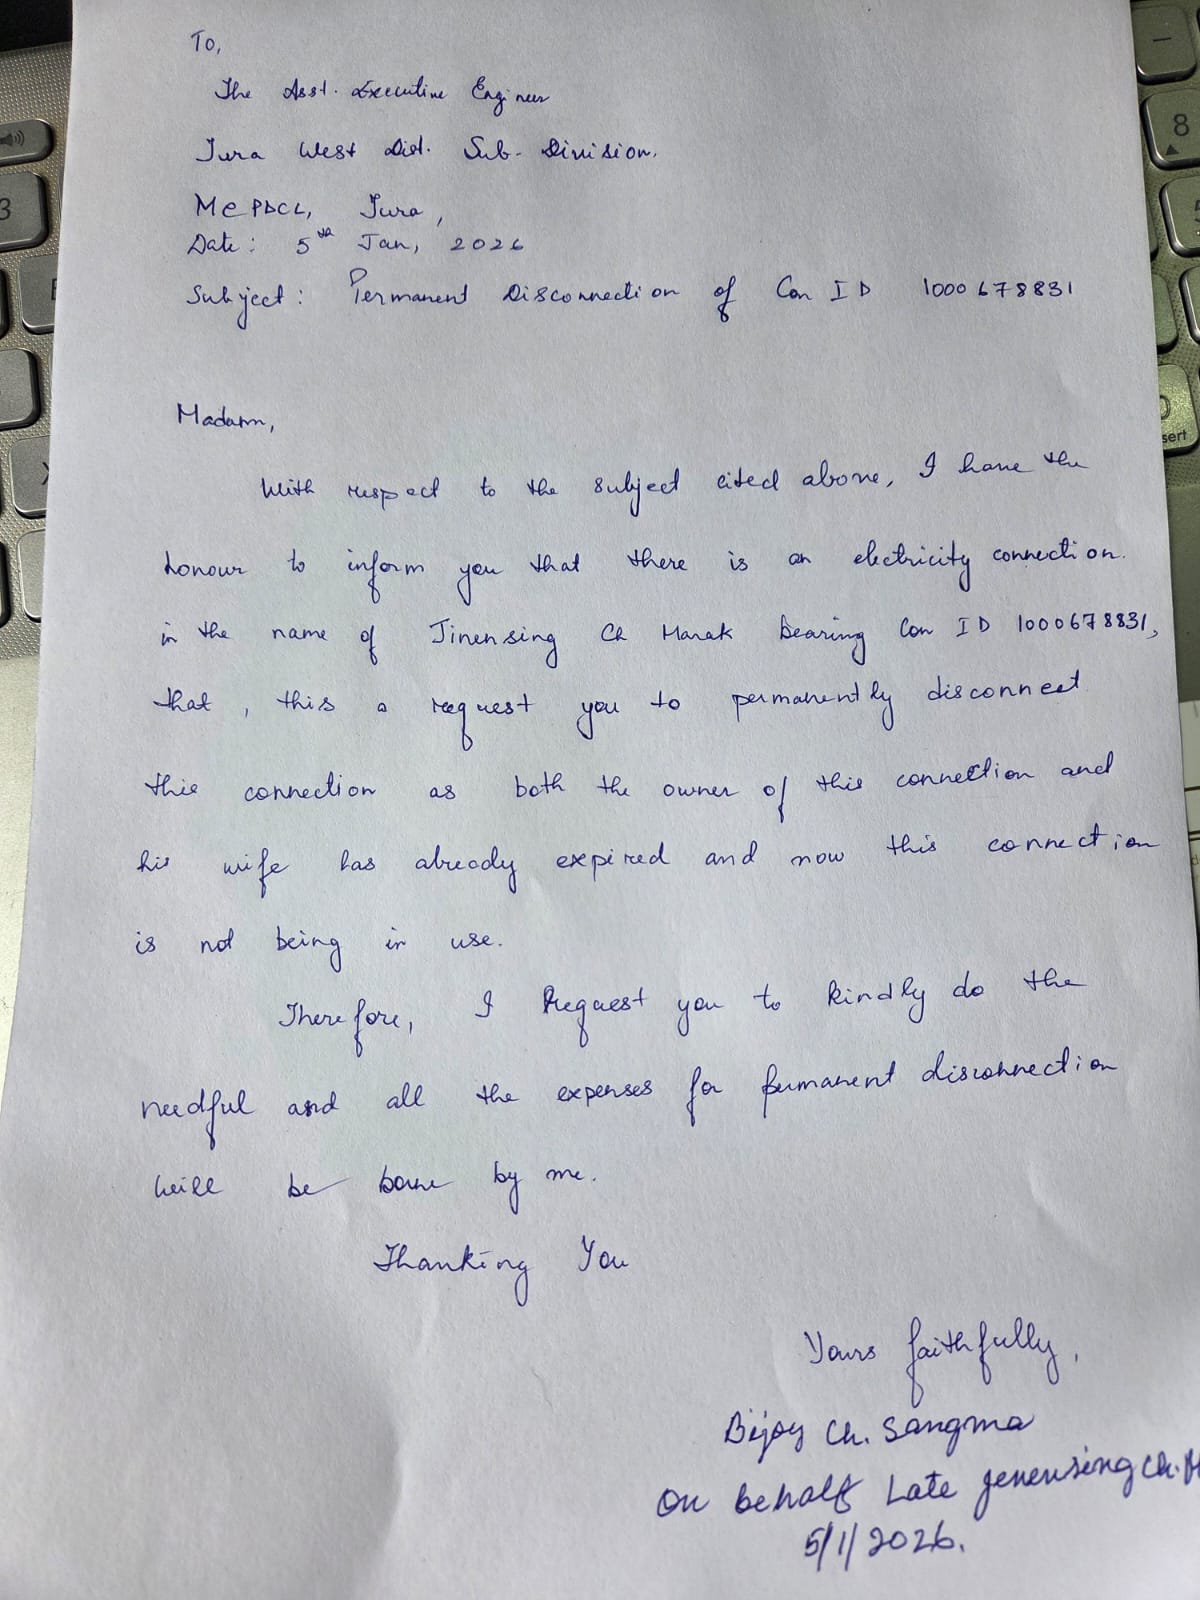 To,
The Asst. Executive Engineer
Tura West Dist. Sub-Division.
MePDCL, Tura,
Date: 5th Jan, 2026
Subject: Permanent Disconnection of Con ID 1000678831
Madam,
With respect to the subject cited above, I have the
honour to inform you that there is an electricity connection.
in the name of Jinensing Ch Marak bearing Con ID 1000678831,
that, this a request you to permanently disconnect
this connection as both the owner of this connection and
his wife has already expired and now this connection
is not being in use.
Therefore, I Request you to kindly do the
needful and all the expenses for permanent disconnection
will be borne by me.
Thanking You
Yours faithfully,
Bijoy Ch. Sangma
On behalf Late Jenensing Ch. M
5/1/2026.